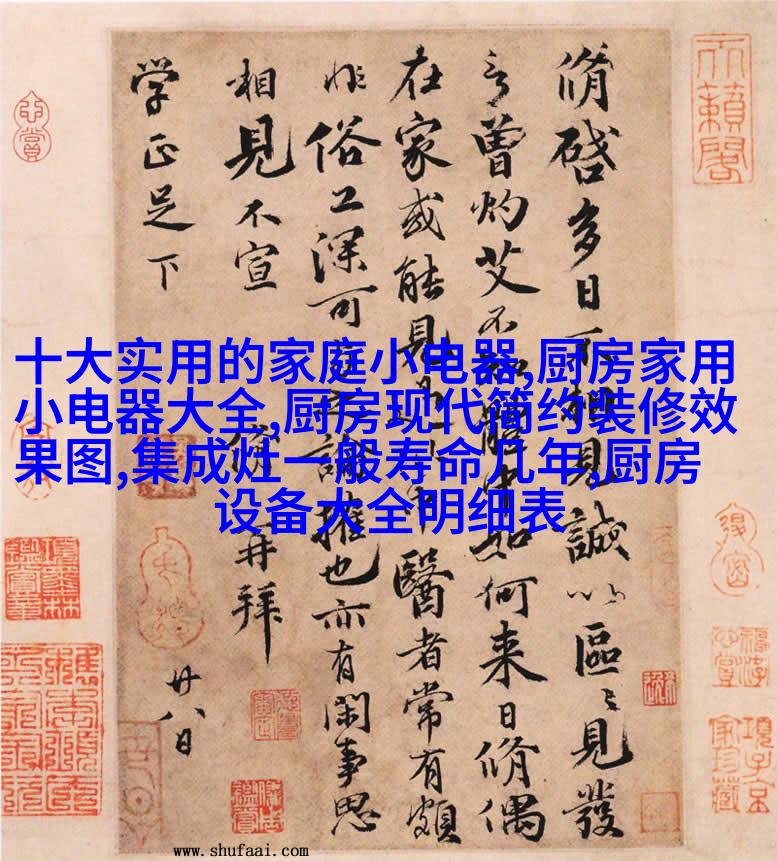 十大实用的家庭小电器,厨房家用
小电器大全,厨房现代简约装修效
果图,集成灶一般寿命几年,厨房
设备大全明细表
脩啓多日不相見誠以區〻見發
言曾灼艾不體中如何來日脩偶
在家或能見中醫者常有頗
非俗工深可論權也亦有閑事思
相見不宣脩再拜
學正足下廿八日
天籟閣
www.shufaai.com